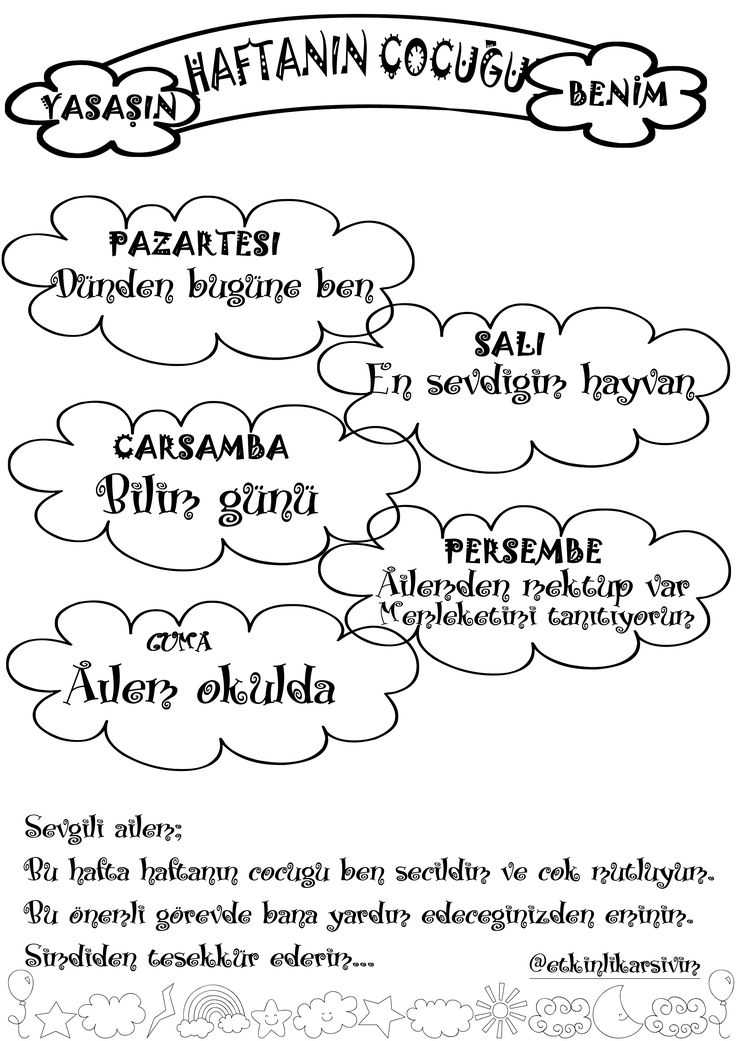 YASAŞIN
HAFTANIN ÇOCUĞU
BENİM
PAZARTESI
Dünden bugüne ben
SALI
En sevdigim hayvan
CARSAMBA
Bilim günü
PERSEMBE
Ailemden mektup var
Memleketimi tanıtıyorum
CUMA
Ailem okulda
Sevgili ailem;
Bu hafta haftanın cocugu ben secildim ve cok mutluyum.
Bu önemli görevde bana yardım edeceginizden eminim.
Simdiden tesekkür ederim...
@etkinlikarsivim